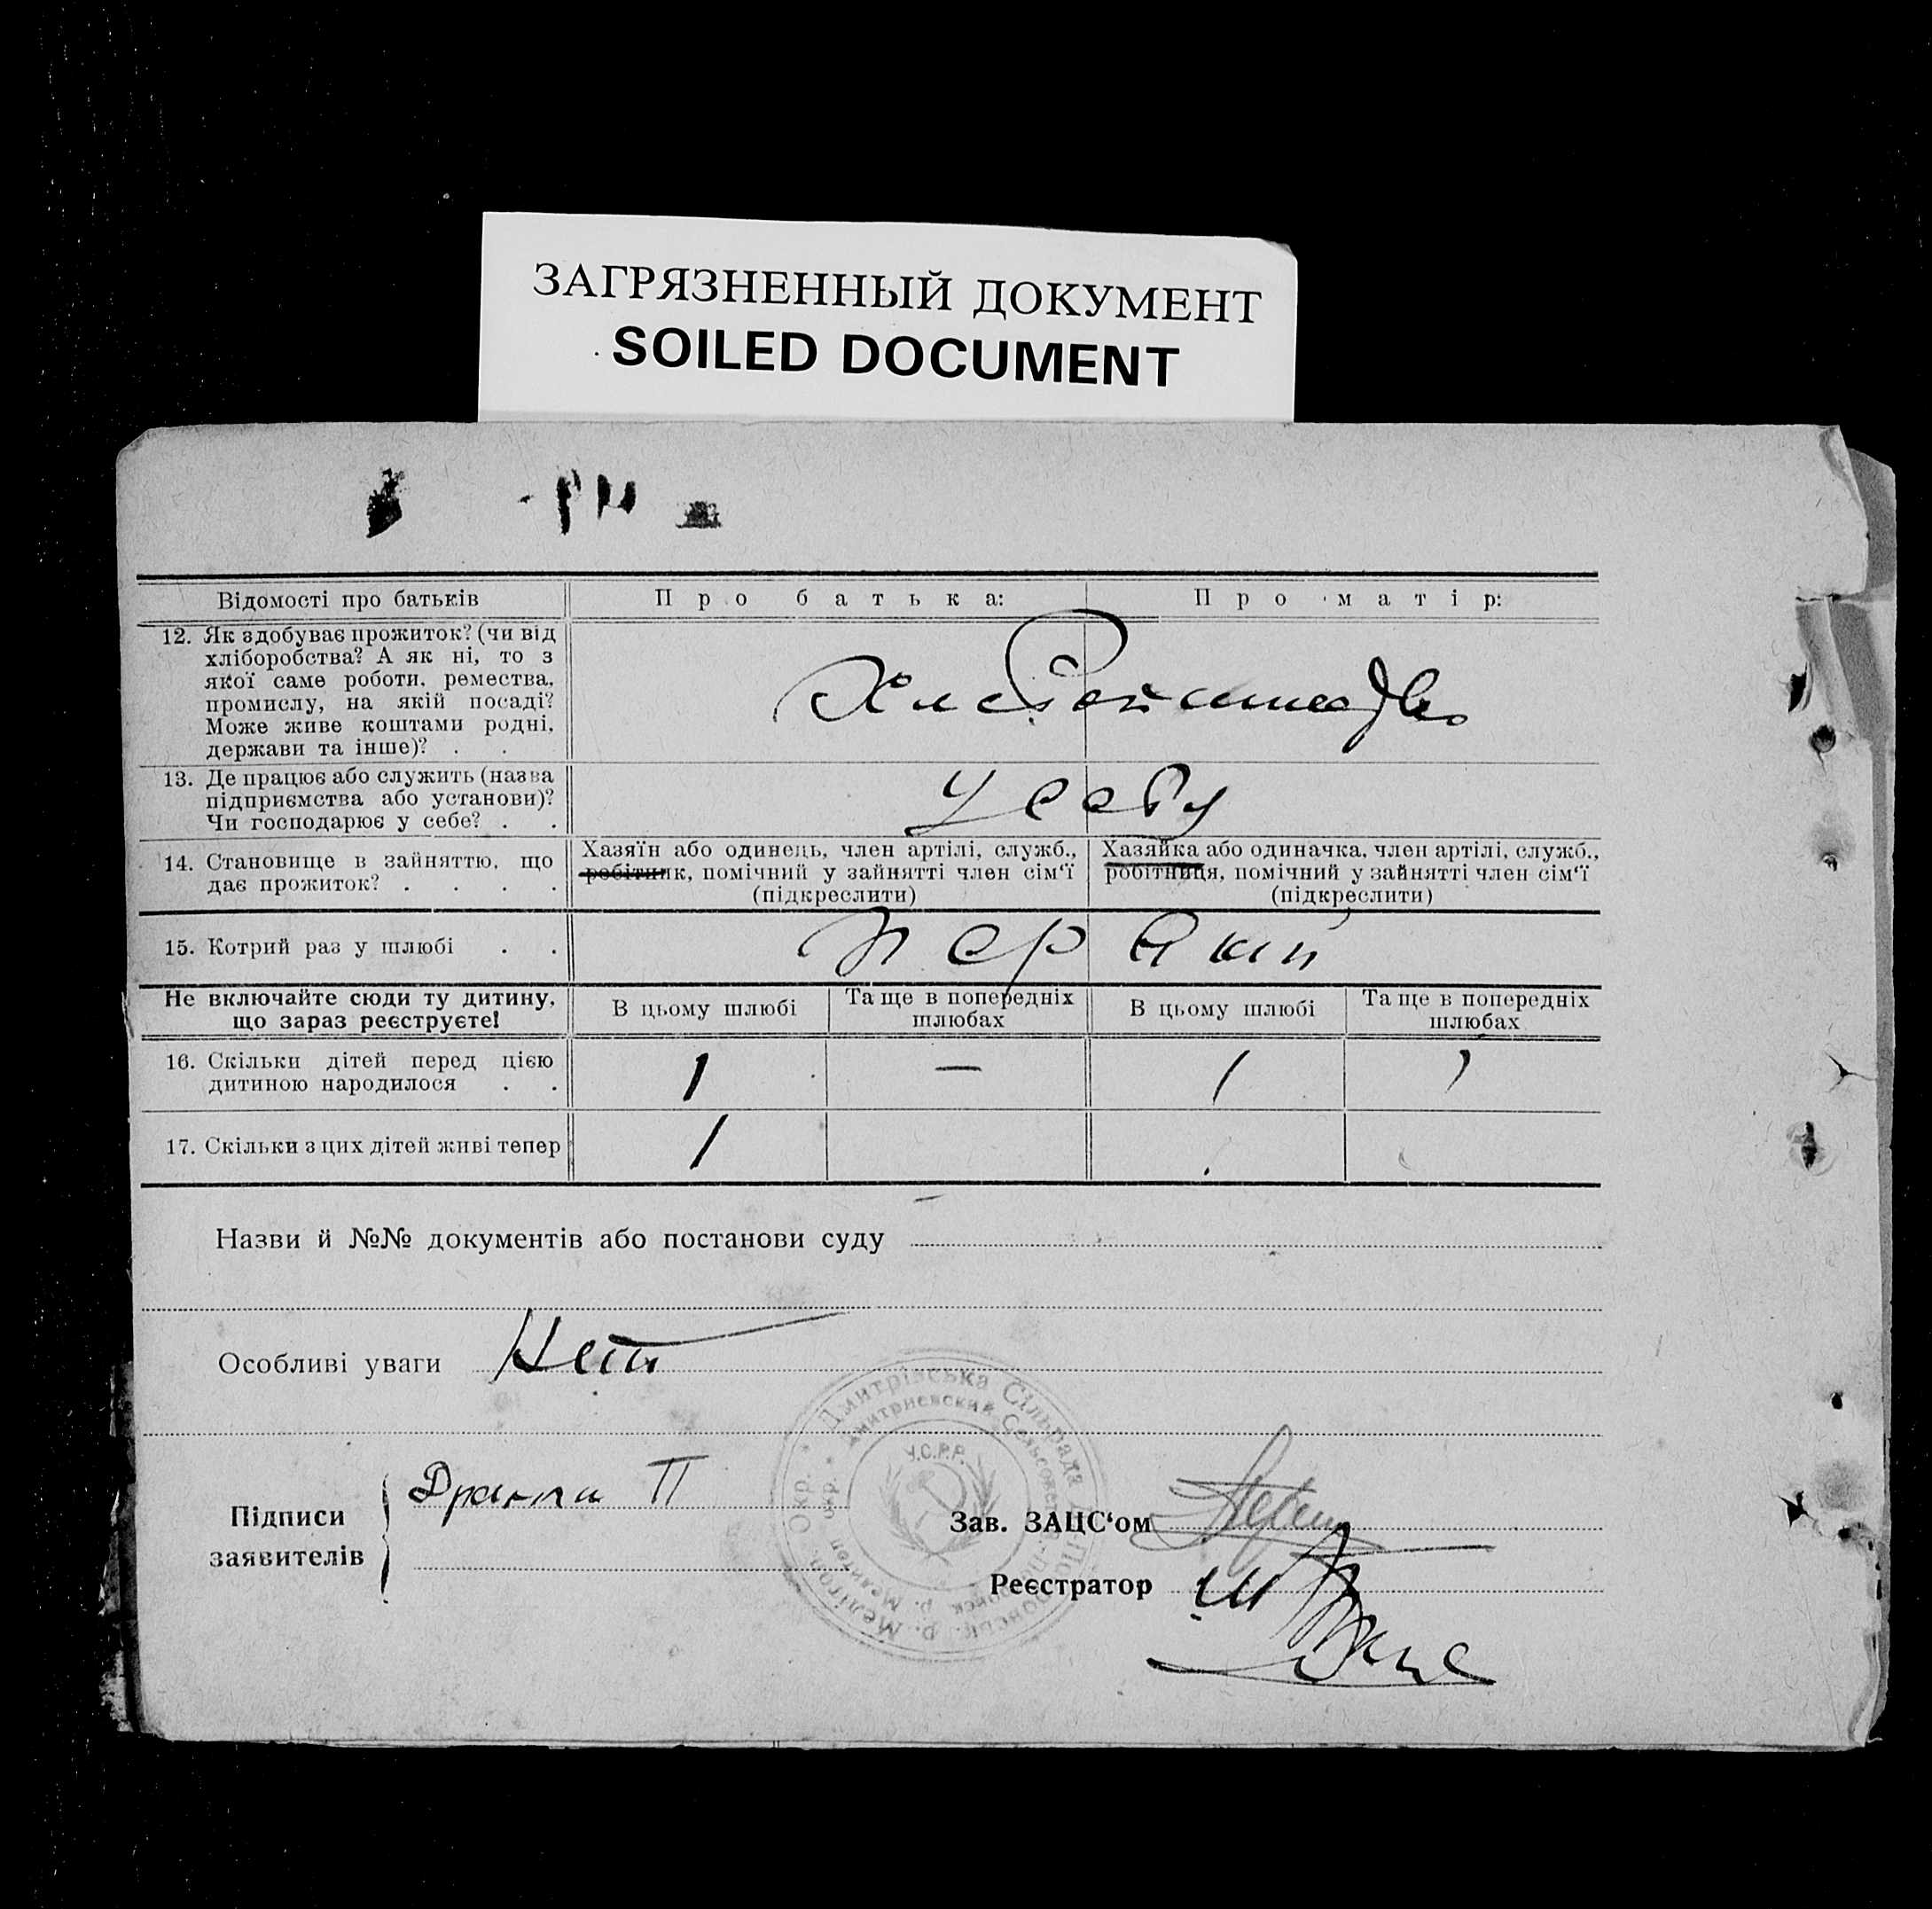 ЗАГРЯЗНЕННЫЙ ДОКУМЕНТ
SOILED DOCUMENT
Відомості про батьків
Про батька:
Про матір:
12. Як здобуває прожиток? (чи від
хліборобства? А як ні, то з
якої саме роботи, ремества,
промислу, на якій посаді?
Може живе коштами родні,
держави та інше)? . .
13. Де працює або служить (назва
підприємства або установи)?
Чи господарює у себе? . .
у себя
14. Становище в зайняттю, що
дає прожиток? . . . .
Хазяїн або одинець, член артілі, служб.,
робітник, помічний у зайнятті член сім'ї
(підкреслити)
Хазяйка або одиначка, член артілі, служб.,
робітниця, помічний у зайнятті член сім'ї
(підкреслити)
15. Котрий раз у шлюбі . .
Не включайте сюди ту дитину,
що зараз реєструєте!
В цьому шлюбі
Та ще в попередніх
шлюбах
В цьому шлюбі
Та ще в попередніх
шлюбах
16. Скільки дітей перед цією
дитиною народилося . .
1 — 1
17. Скільки з цих дітей живі тепер
1
Назви й №№ документів або постанови суду
Особливі уваги Нет
Дмитрівська Сільрада
Дмитриевский Сельсовет
У.С.Р.Р.
Підписи
заявителів
Зав. ЗАЦС'ом
Реєстратор